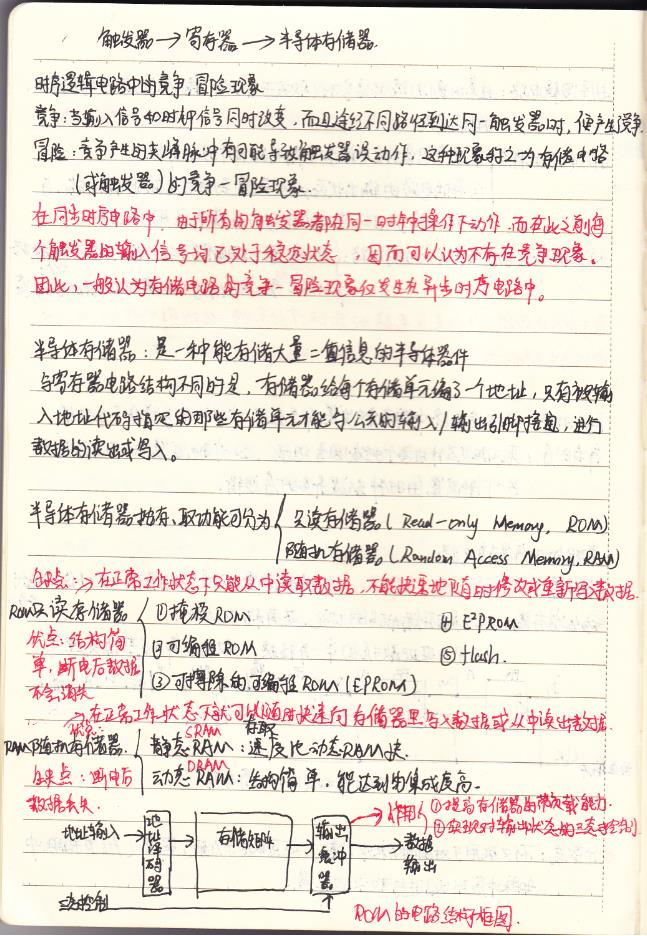 触发器→寄存器→半导体存储器.
时序逻辑电路中的竞争,冒险现象
竞争:当输入信号和时钟信号同时改变,而且途经不同路径到达同一触发器时,便产生竞争
冒险:竞争产生的尖峰脉冲有可能导致触发器误动作,这种现象称之为存储电路
(或触发器)的竞争—冒险现象.
在同步时序电路中,由于所有的触发器都在同一时钟操作下动作,而在此之前每
个触发器的输入信号均已处于稳定状态,因而可以认为不存在竞争现象。
因此,一般认为存储电路的竞争—冒险现象仅发生在异步时序电路中。
半导体存储器:是一种能存储大量二值信息的半导体器件
与寄存器电路结构不同的是,存储器给每个存储单元编了一个地址,只有被输
入地址代码指定的那些存储单元才能与公共的输入/输出引脚接通,进行
数据的读出或写入。
半导体存储器按存、取功能可分为
只读存储器(Read-only Memory, ROM)
随机存储器(Random Access Memory, RAM)
缺点:→在正常工作状态下只能从中读取数据,不能快速地随时修改或重新写入数据.
ROM只读存储器
优点:结构简
单,断电后数据
不会消失
①掩模ROM
②可编程ROM
③可擦除的可编程ROM(EPROM)
④E²PROM
⑤Flash.
优点:→在正常工作状态下就可以随时快速向存储器里写入数据或从中读出数据.
RAM随机存储器
缺点:断电后
数据丢失.
存取
SRAM
静态RAM:速度比动态RAM快.
DRAM
动态RAM:结构简单,能达到的集成度高.
地址输入→
地址译码器
存储矩阵
输出缓冲器
→数据输出
作用
①提高存储器的带负载能力.
②实现对输出状态的三态控制
三态控制
ROM的电路结构框图.